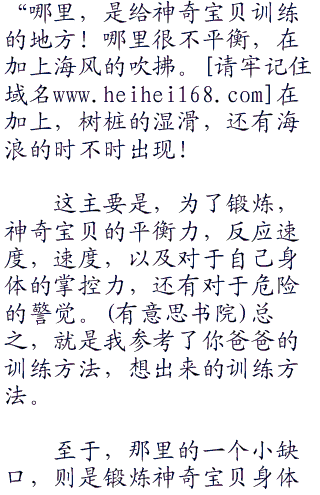 “哪里，是给神奇宝贝训练
的地方！哪里很不平衡，在
加上海风的吹拂。[请牢记住
域名www.heihei168.com]在
加上，树桩的湿滑，还有海
浪的时不时出现！
这主要是，为了锻炼，
神奇宝贝的平衡力，反应速
度，速度，以及对于自己身
体的掌控力，还有对于危险
的警觉。(有意思书院)总
之，就是我参考了你爸爸的
训练方法，想出来的训练方
法。
至于，那里的一个小缺
口，则是锻炼神奇宝贝身体